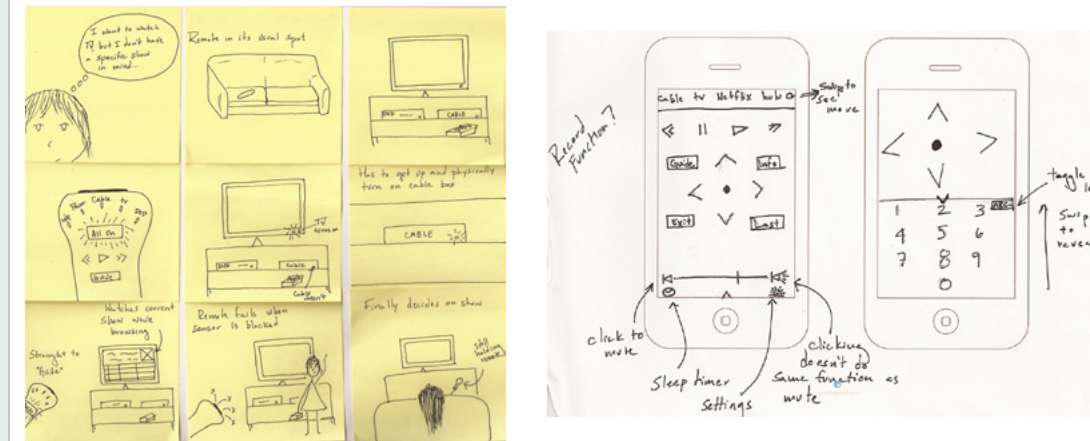 I want to watch
TV, but I don't have
a specific show
in mind...
Remote in its usual spot
CABLE
Power
Cable
TV
DVD
All On
Guide
TV
turns on
Cable
Cable
doesn't
Has to get up and physically
turn on cable box
CABLE
Watches current
show while
browsing
Straight to
"Guide"
Remote fails when
sensor is blocked
Finally decides on show
Still
holding
remote
Record
Function?
Cable TV Netflix hulu
Swipe to
see
more
Guide
Info
Exit
Last
click to
mute
Sleep timer
settings
clicking
doesn't do
same function as
mute
1 2 3 ABC
4 5 6
7 8 9
0
toggle
Swip
to
revea